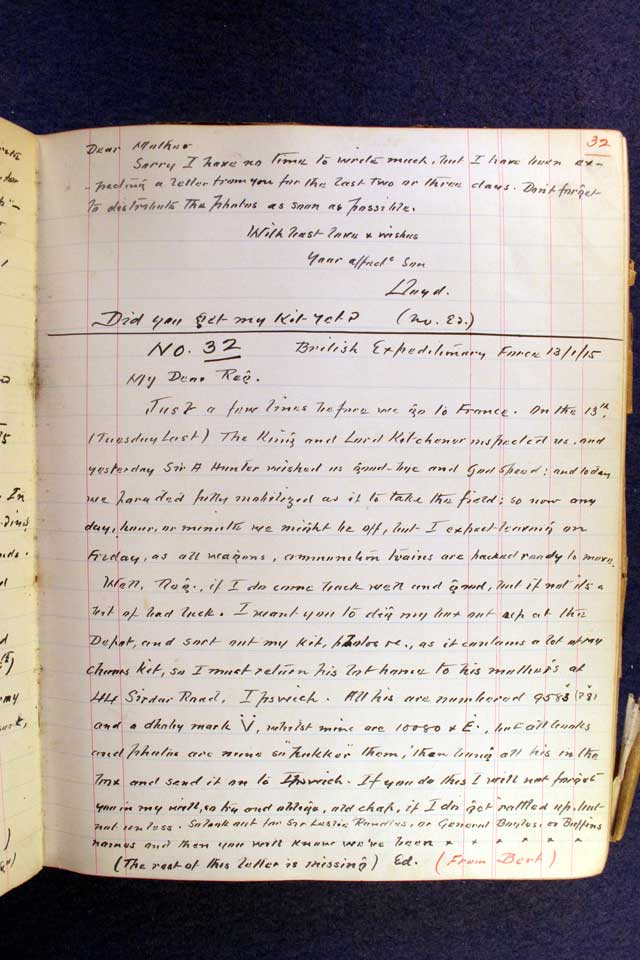 32
Dear Mother
Sorry I have no time to write much, but I have been ex-
-pecting a letter from you for the last two or three days. Don't forget
to distribute the photos as soon as possible.
With best love & wishes
Your affectᵉ Son
Lloyd.
Did you get my Kit yet? (No. 23.)
No. 32 British Expeditionary Force 13/1/15
My Dear Reg.
Just a few lines before we go to France. On the 13th.
(Tuesday Last) The King and Lord Kitchener inspected us, and
yesterday Sir A Hunter wished us good-bye and God speed; and today
we paraded fully mobilized as if to take the field; so now any
day, hour, or minute we might be off, but I expect leaving on
Friday, as all wagons, ammunition trains are packed ready to move.
Well, Reg., if I do come back well and good, but if not it's a
bit of bad luck. I want you to dig my box out up at the
Depot, and sort out my kit, photos re., as it contains a lot of my
chums kit, so I must return his lot home to his mother's at
44 Sirdar Road, Ipswich. All his are numbered 9583 (?8)
and a dhoby mark V, whilst mine are 10080 & E., but all books
and photos are mine so "pukkor" them, then bung all his in the
box and send it on to Ipswich. If you do this I will not forget
you in my will, so try and oblige, old chap, if I do get rattled up, but
not unless. So look out for Sir Leslie Rundles, or General Bayles, or Buffins
names and then you will know we've been x x x x x x
(The rest of this letter is missing) Ed. (From Bert)